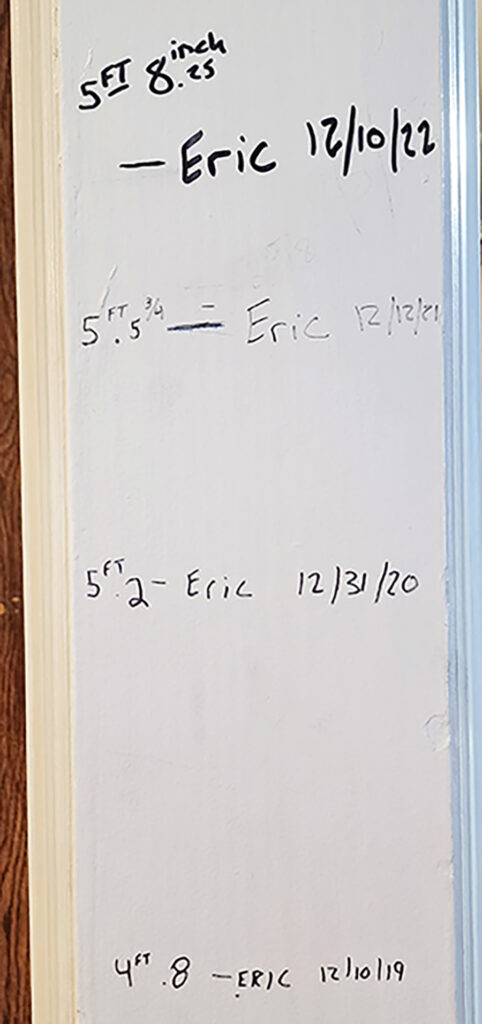 5 FT 8.25 inch
- Eric 12/10/22
5 FT. 5 3/4 - Eric 12/12/21
5 FT. 2 - Eric 12/31/20
4 FT. 8 - ERIC 12/10/19